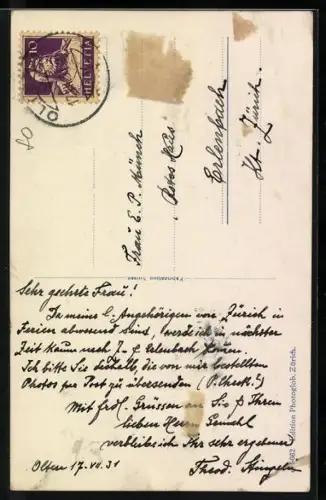 10
HELVETIA
OLTEN
Frau E. P. Münch
Photos Haus
Erlenbach
Kt. Zürich
Fabrication Suisse
Sehr geehrte Frau!
Da meine l. Angehörigen von Zürich in
Ferien abwesend sind, werde ich in nächster
Zeit kaum nach J. E. Erlenbach kommen.
Ich bitte Sie deshalb, die von mir bestellten
Photos per Post zu übersenden
Mit frdl. Grüssen an Sie & Ihren
lieben Herrn Gemahl
verbleibe ich Ihr sehr ergebener
Olten 17.VII.31 Theod.
Edition Photoglob, Zürich.